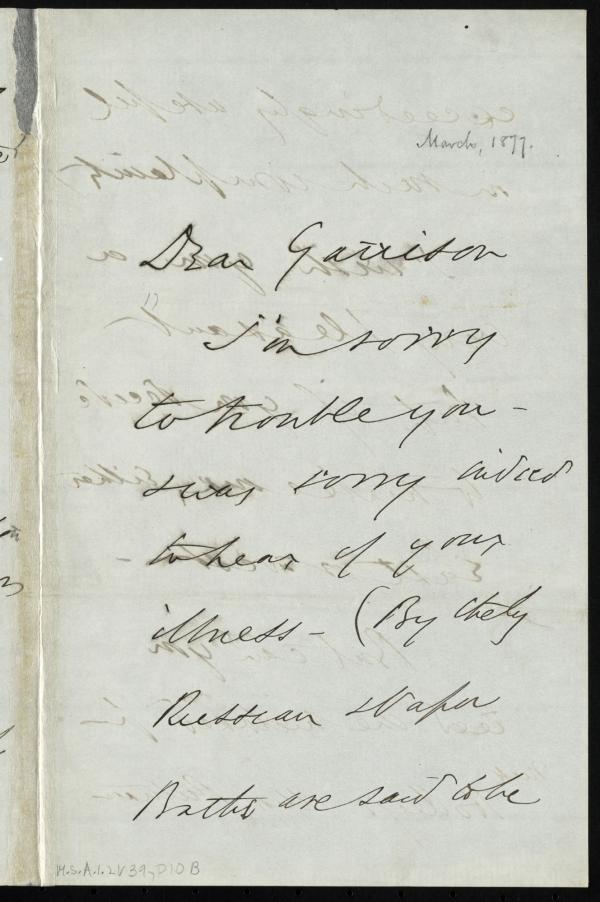 March, 1877.
Dear Garrison
I'm sorry
to trouble you –
& was sorry indeed
to hear of your
illness – (By the by
Russian Vapor
Baths are said to be